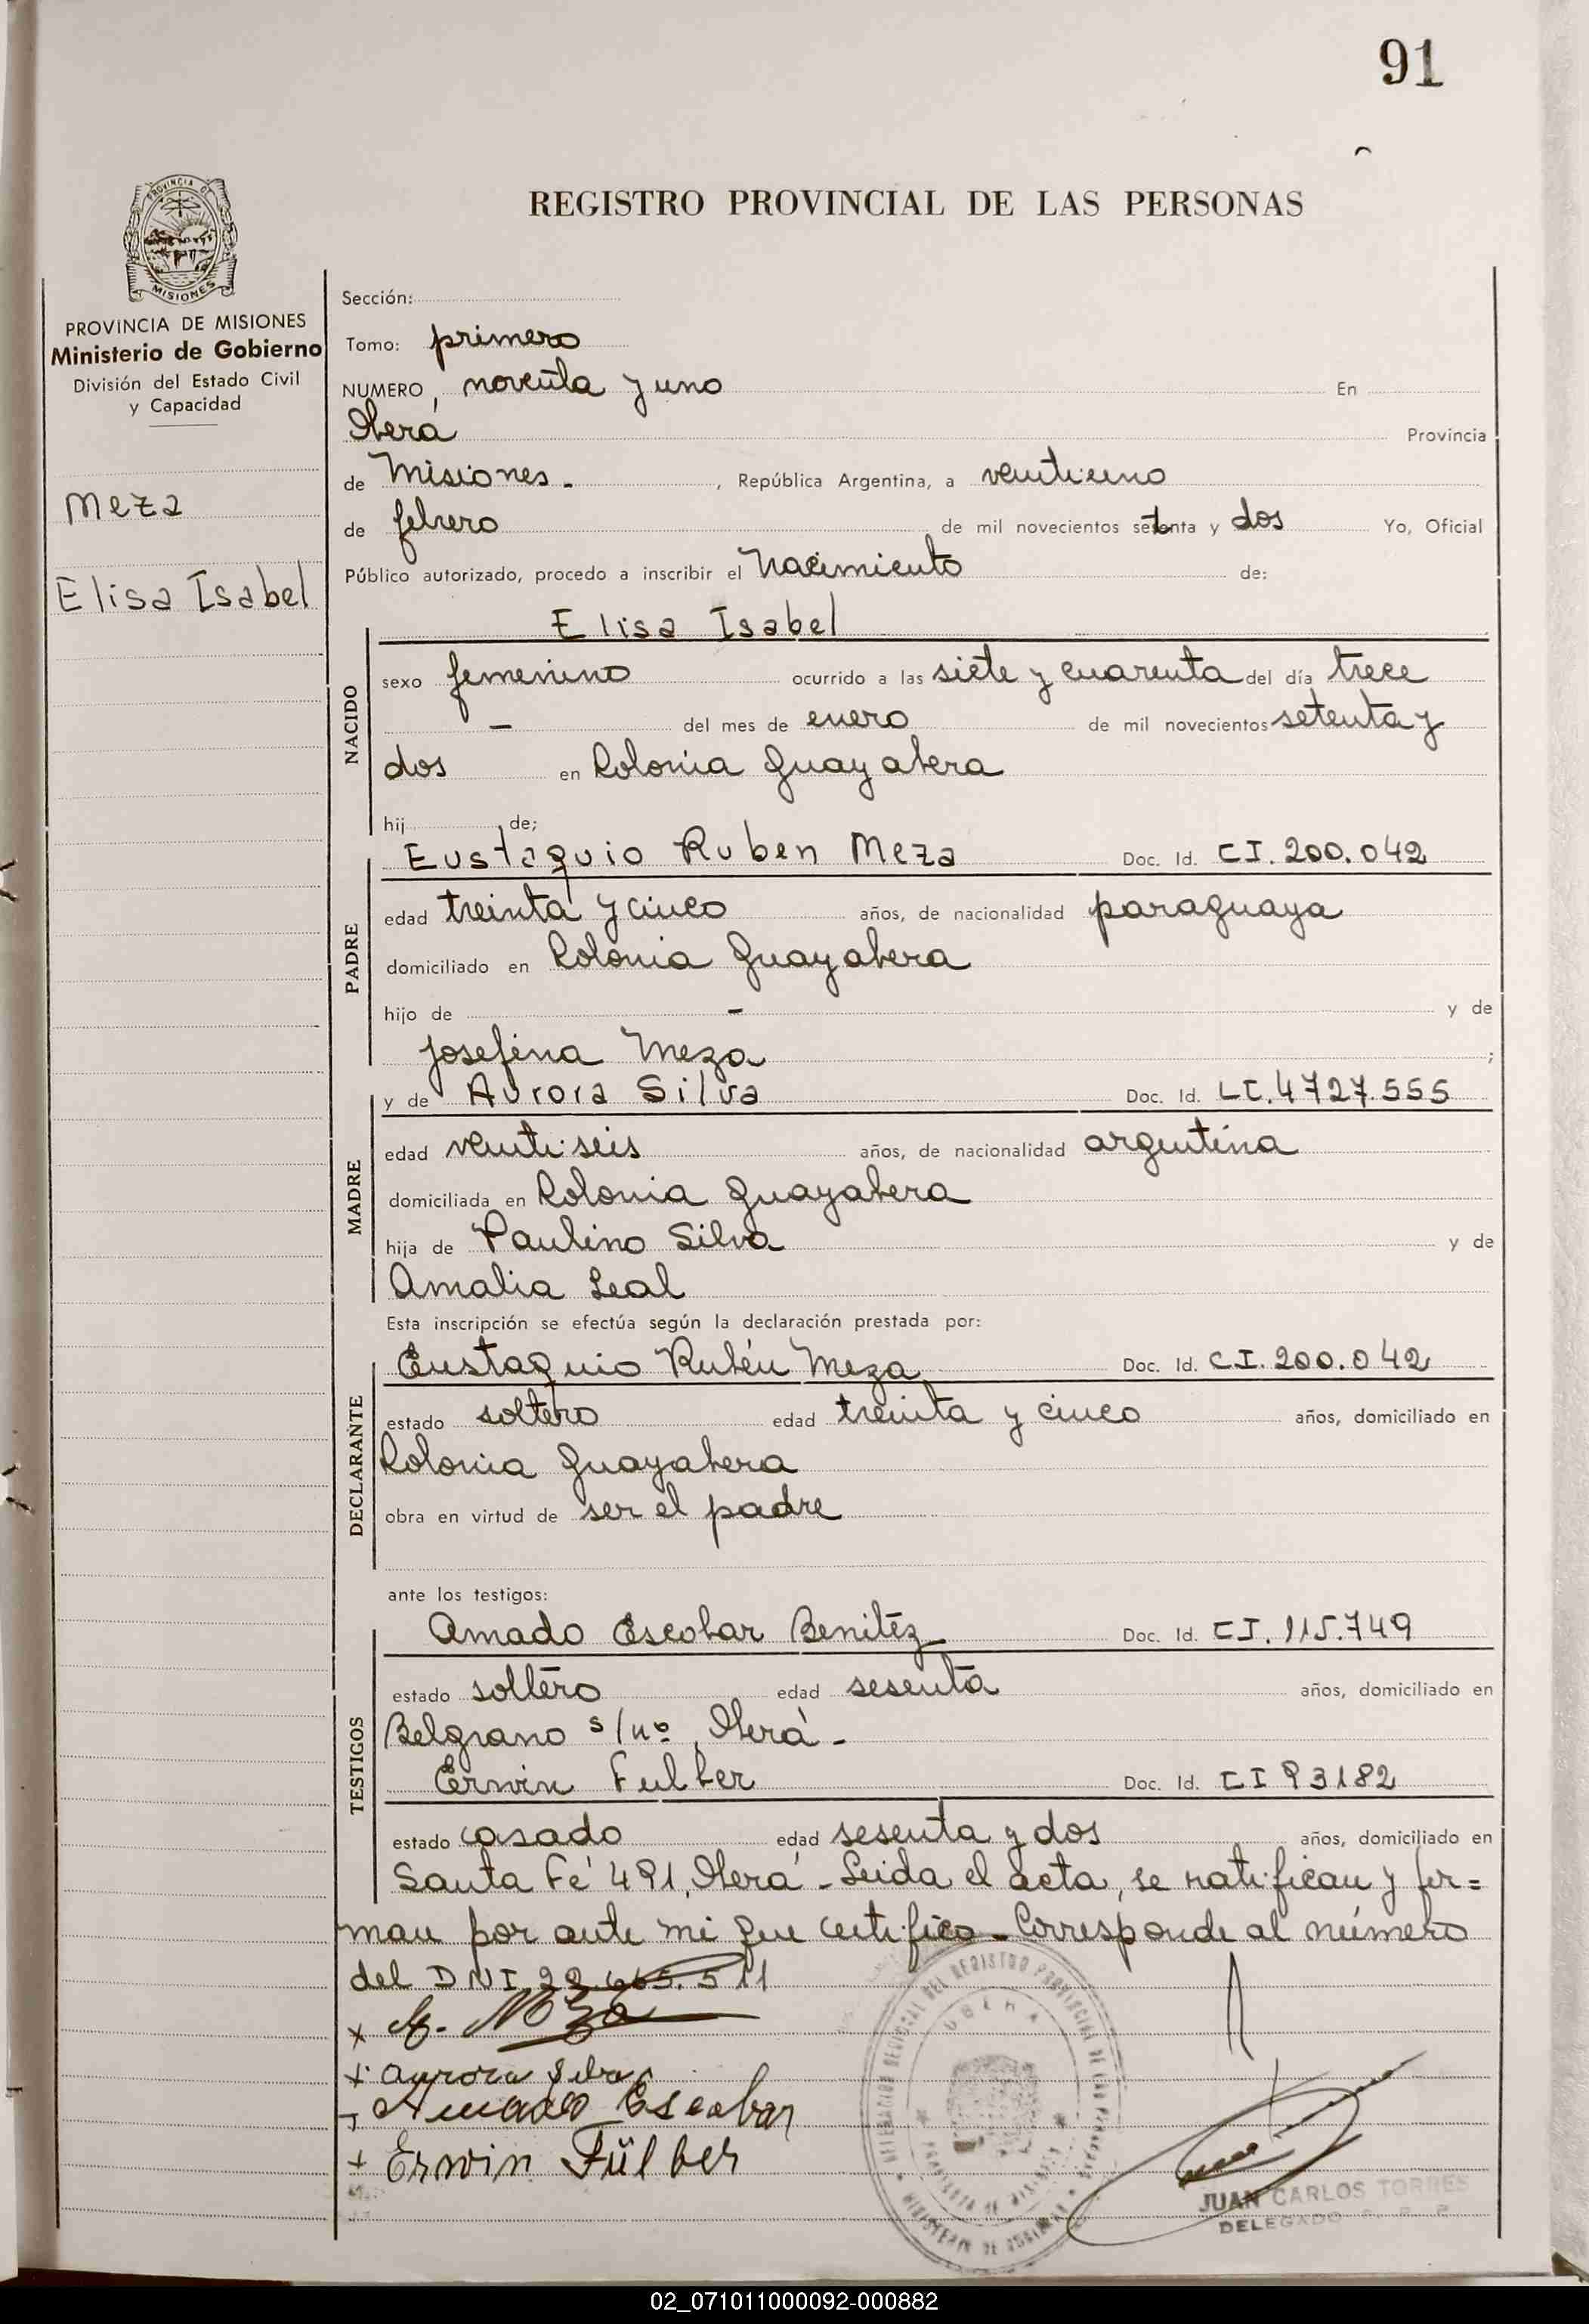 91
REGISTRO PROVINCIAL DE LAS PERSONAS
PROVINCIA DE
MISIONES
PROVINCIA DE MISIONES
Ministerio de Gobierno
División del Estado Civil
y Capacidad
Meza
Elisa Isabel
Sección:
Tomo: primero
NUMERO, noventa y uno En
Oberá Provincia
de Misiones. , República Argentina, a veintiuno
de febrero de mil novecientos setenta y dos Yo, Oficial
Público autorizado, procedo a inscribir el Nacimiento de:
Elisa Isabel
NACIDO
sexo femenino ocurrido a las siete y cuarenta del día trece
- del mes de enero de mil novecientos setenta y
dos en Colonia Guayabera
hij de;
Eustaquio Ruben Meza Doc. Id. CI. 200.042
PADRE
edad treinta y cinco años, de nacionalidad paraguaya
domiciliado en Colonia Guayabera
hijo de - y de
Josefina Meza ;
y de Aurora Silva Doc. Id. LC. 4727.555
MADRE
edad veintiseis años, de nacionalidad argentina
domiciliada en Colonia Guayabera
hija de Paulino Silva y de
Amalia Leal
Esta inscripción se efectúa según la declaración prestada por:
Eustaquio Rubén Meza Doc. Id. CI. 200.042
DECLARANTE
estado soltero edad treinta y cinco años, domiciliado en
Colonia Guayabera
obra en virtud de ser el padre
ante los testigos:
Amado Escobar Benitez Doc. Id. CI. 115.749
TESTIGOS
estado soltero edad sesenta años, domiciliado en
Belgrano s/nº, Oberá-
Erwin Fulber Doc. Id. CI 93182
estado casado edad sesenta y dos años, domiciliado en
Santa Fé 491, Oberá - Leida el acta, se ratifican y fir=
man por ante mi que certifico - Corresponde al número
del DNI 22.665.511
x Meza
x Aurora Silva
Amado Escobar
+ Erwin Fülber
OBERA
JUAN CARLOS TORRES
DELEGADO
02_071011000092-000882